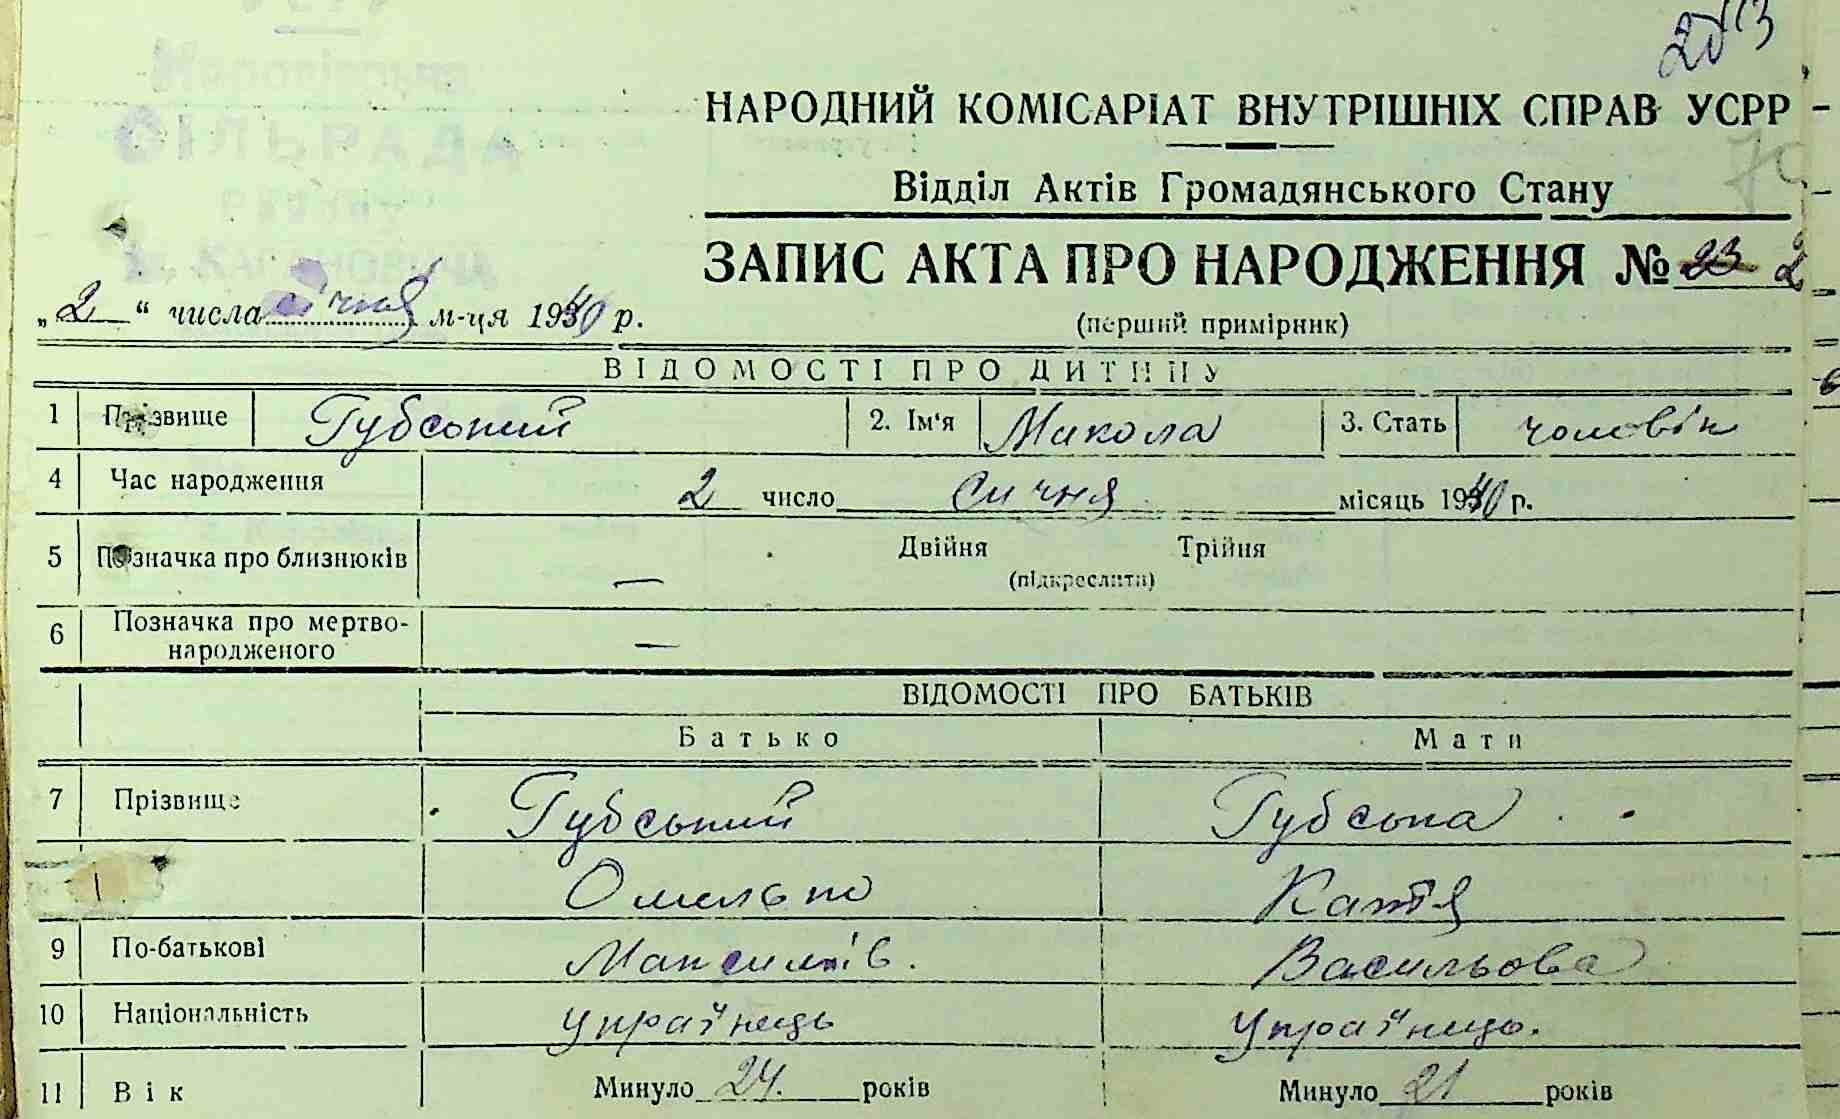 283
НАРОДНИЙ КОМІСАРІАТ ВНУТРІШНІХ СПРАВ УСРР
Відділ Актів Громадянського Стану
СІЛЬРАДА
КАГАНОВИЧА
ЗАПИС АКТА ПРО НАРОДЖЕННЯ № 23 2
„2“ числа січня м-ця 1940 р.
(перший примірник)
ВІДОМОСТІ ПРО ДИТИНУ
1 Прізвище Губський 2. Ім'я Микола 3. Стать чоловік
4 Час народження 2 число сичня місяць 1940 р.
5 Позначка про близнюків — Двійня Трійня
(підкреслити)
6 Позначка про мертво-
народженого —
ВІДОМОСТІ ПРО БАТЬКІВ
Батько Мати
7 Прізвище Губський Губська
Омелько Катя
9 По-батькові Максимів. Васильова
10 Національність українець українець.
11 Вік Минуло 24. років Минуло 21 років